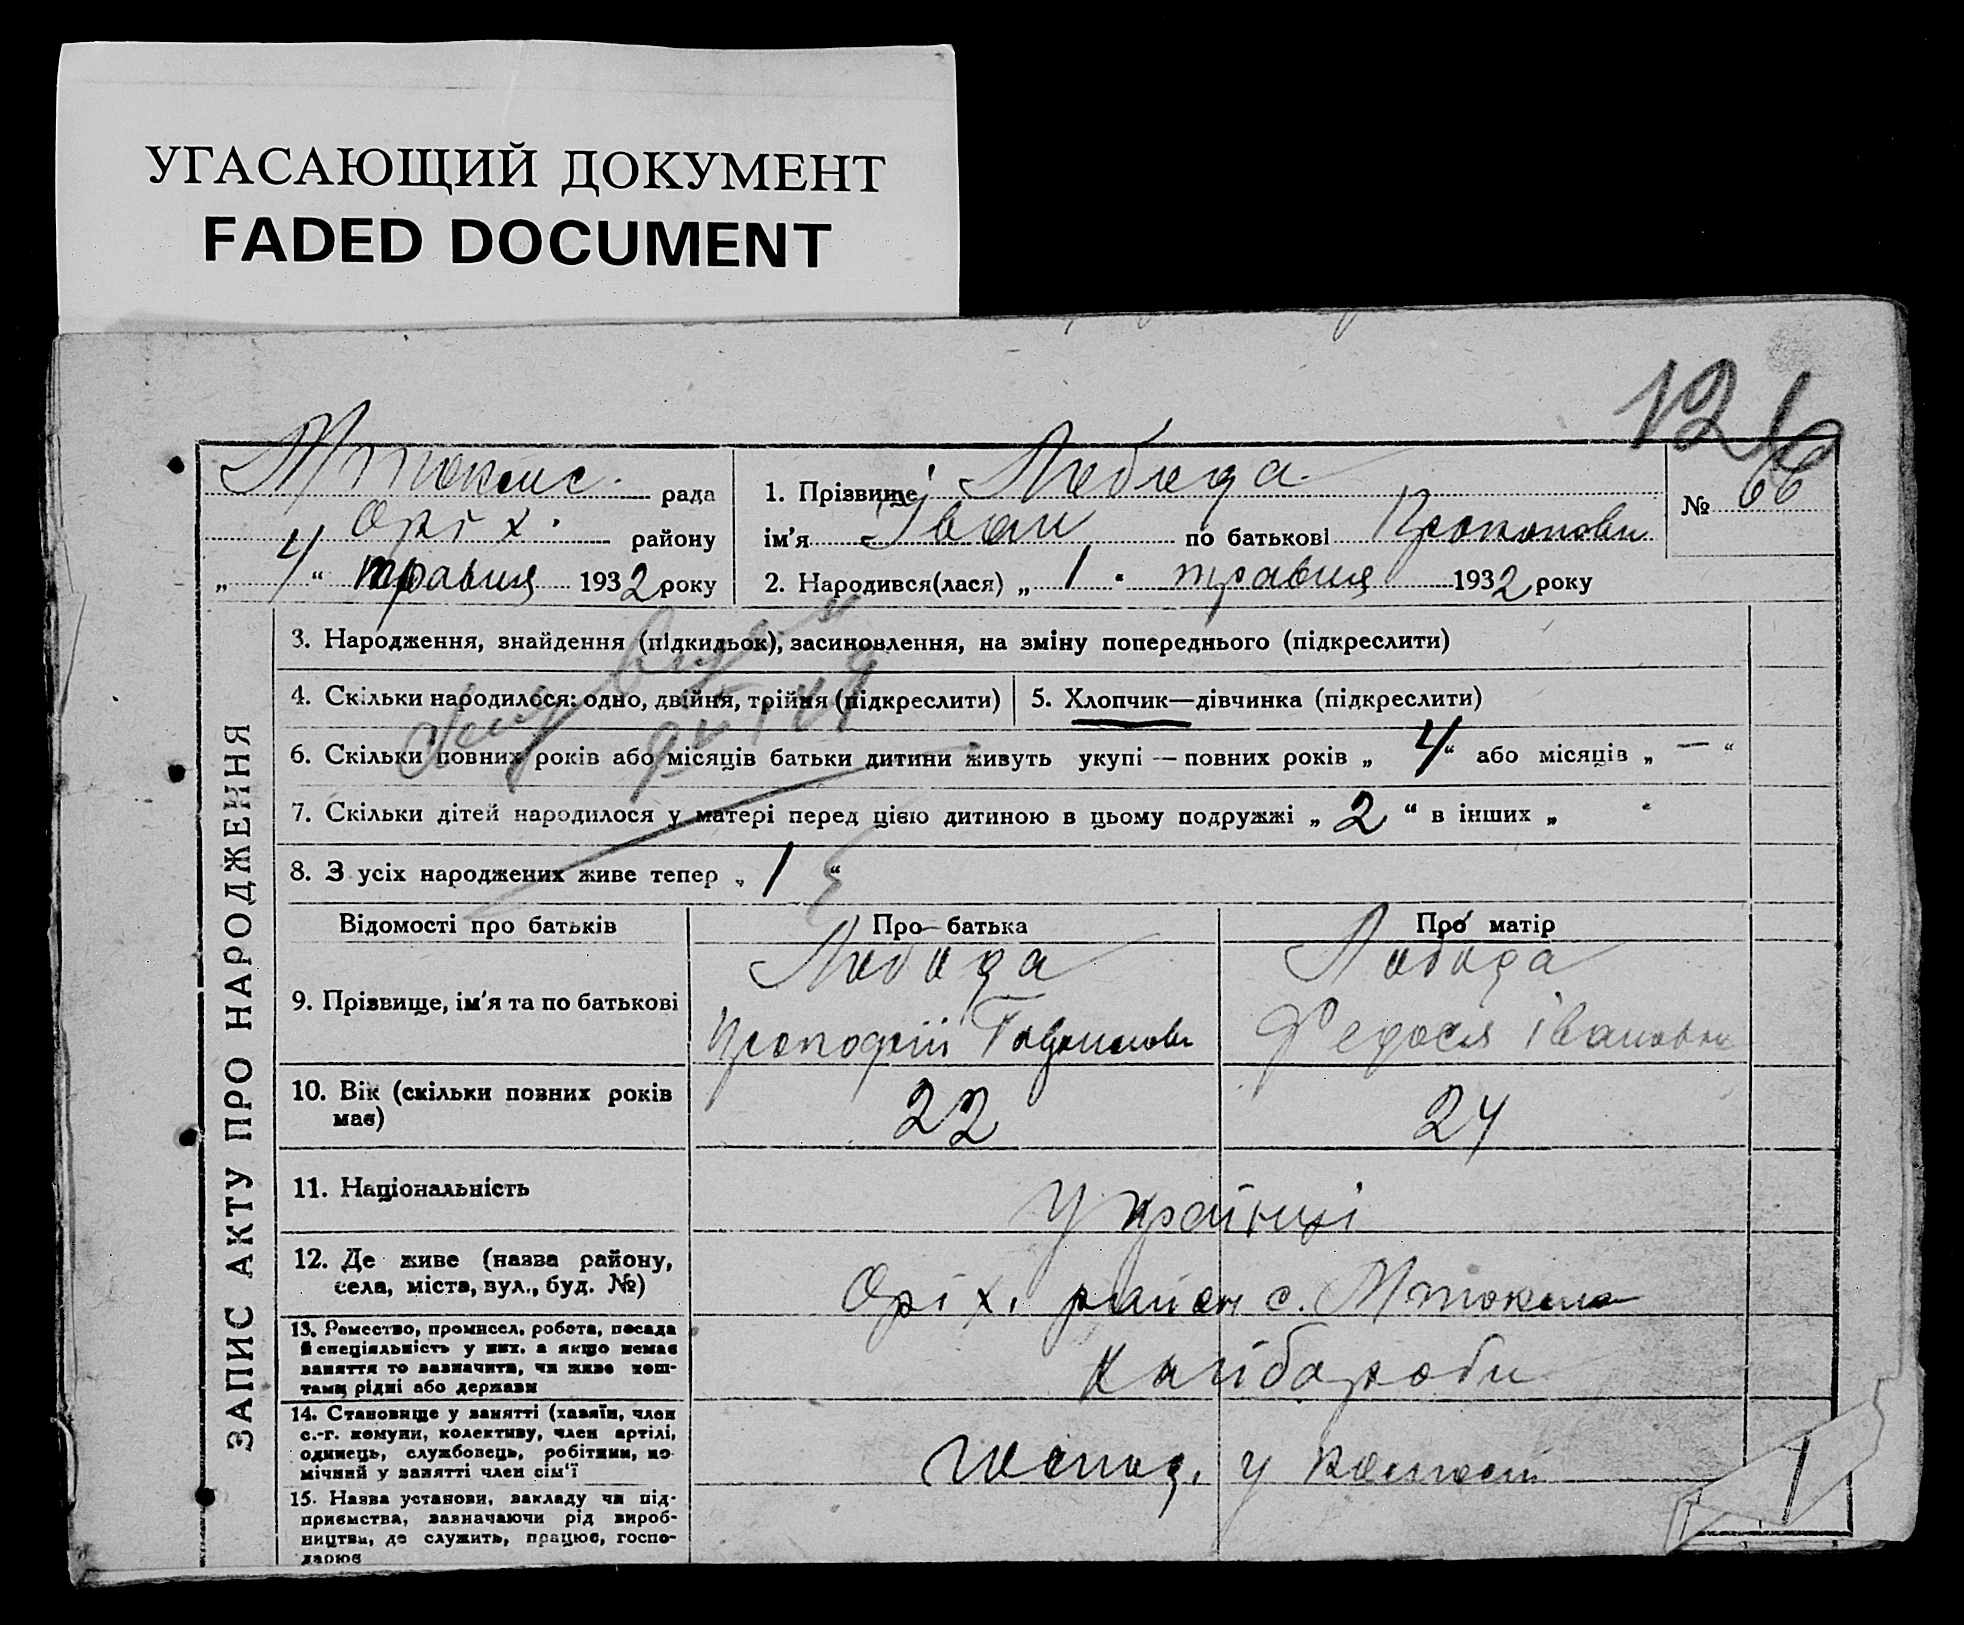 УГАСАЮЩИЙ ДОКУМЕНТ
FADED DOCUMENT
126
рада
Оріх. району
„ 4 “ травня 1932 року
1. Прізвище Лебеда
ім'я Іван по батькові
2. Народився(лася) „ 1 “ травня 1932 року
№ 66
ЗАПИС АКТУ ПРО НАРОДЖЕННЯ
3. Народження, знайдення (підкидьок), засиновлення, на зміну попереднього (підкреслити)
4. Скільки народилося: одно, двійня, трійня (підкреслити)
5. Хлопчик—дівчинка (підкреслити)
6. Скільки повних років або місяців батьки дитини живуть укупі — повних років „ 4 “ або місяців „ — “
7. Скільки дітей народилося у матері перед цією дитиною в цьому подружжі „ 2 “ в інших „ “
8. З усіх народжених живе тепер „ 1 “
Відомості про батьків
Про батька
Про матір
9. Прізвище, ім'я та по батькові
Лебеда
Лебеда
Федося Івановна
10. Вік (скільки повних років
має)
22
24
11. Національність
Українці
12. Де живе (назва району,
села, міста, вул., буд. №)
Оріх. район с.
13. Ремество, промисел, робота, посада
й спеціяльність у них, а якщо немає
заняття то зазначити, чи живе кош-
тами рідні або держави
Хлібороби
14. Становище у занятті (хазяїн, член
с.-г. комуни, колективу, член артілі,
одинець, службовець, робітник, по-
мічний у занятті член сім'ї
у
15. Назва установи, закладу чи під-
приємства, зазначаючи рід вироб-
ництва, де служить, працює, госпо-
дарює
1